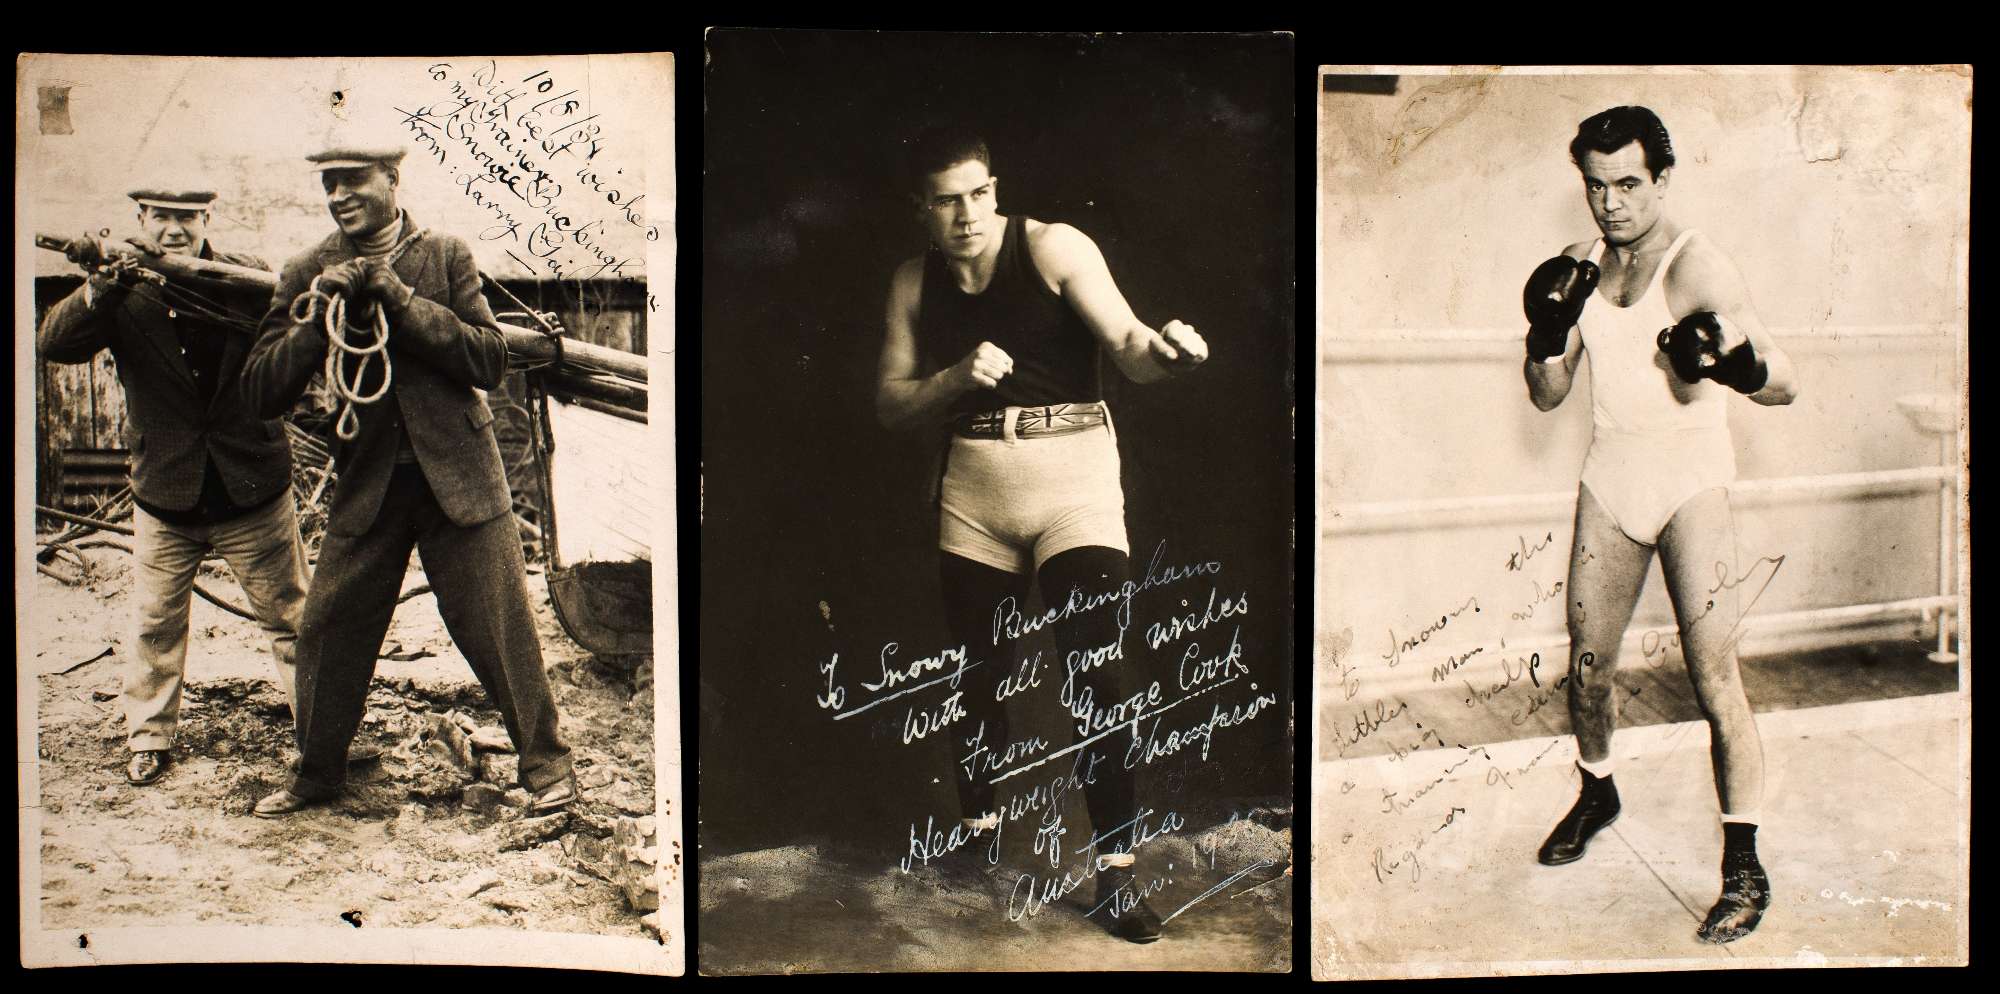 10/8/34
With best wishes
to my Trainer.
Snowie Buckingham.
From: Larry Gains
To Snowy Buckingham
With all good wishes
From George Cook
Heavyweight Champion
of
Australia
Jan: 19
to Snowy, the
little man, who is
a big help in
a training camp
Regards from